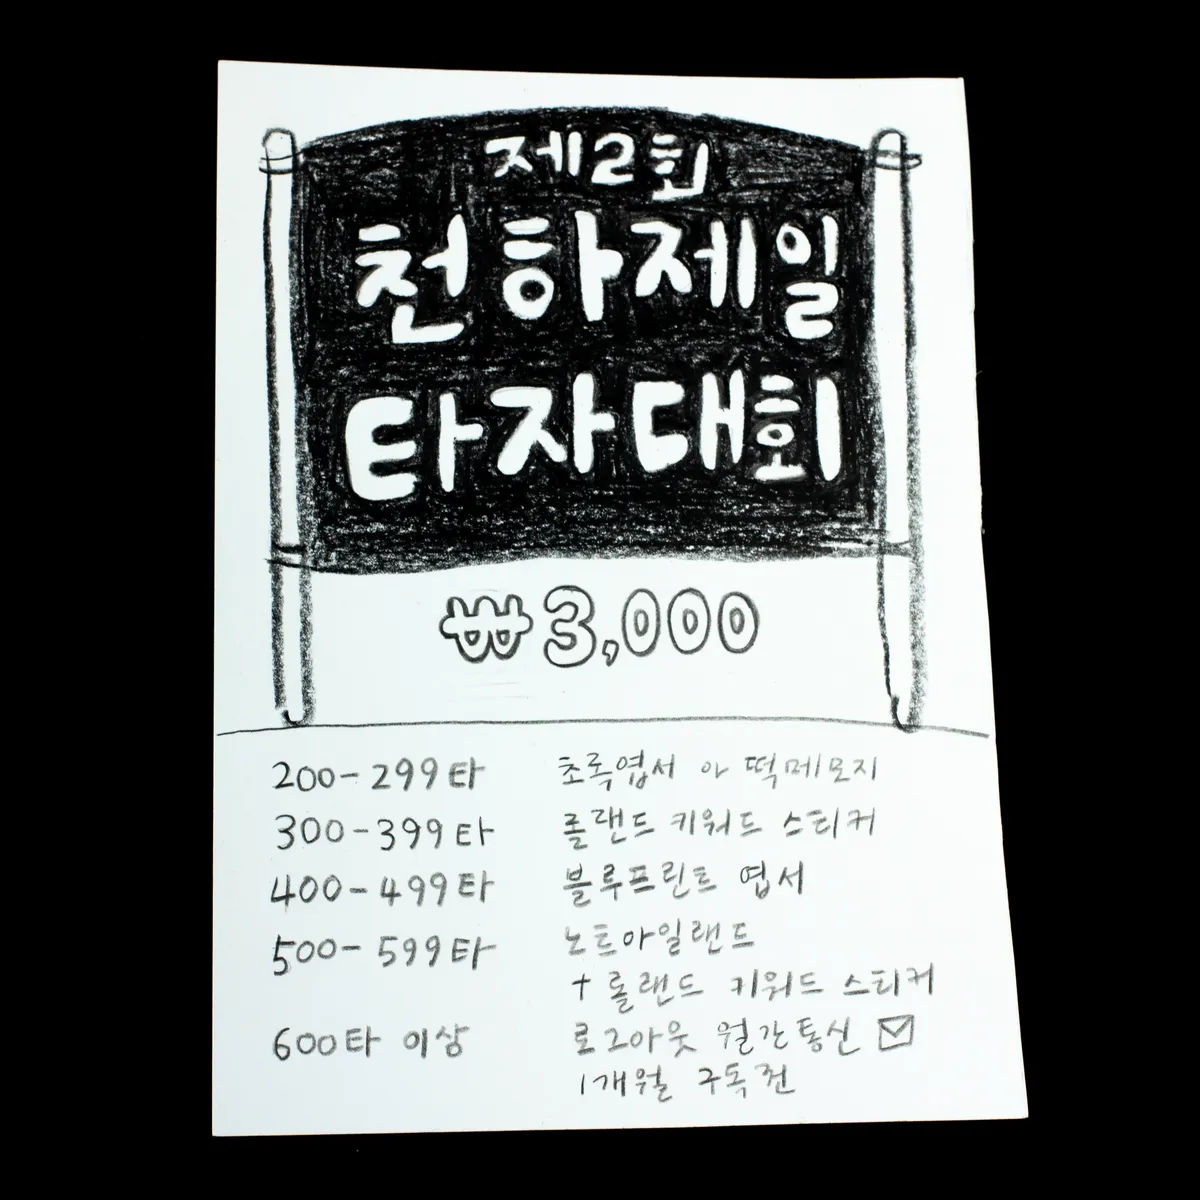 제2회
천하제일
타자대회
₩3,000
200-299타 초록엽서 아 떡메모지
300-399타 롤랜드 키워드 스티커
400-499타 블루프린트 엽서
500-599타 노트아일랜드
+ 롤랜드 키워드 스티커
600타 이상 로그아웃 월간통신 ☑
1개월 구독권